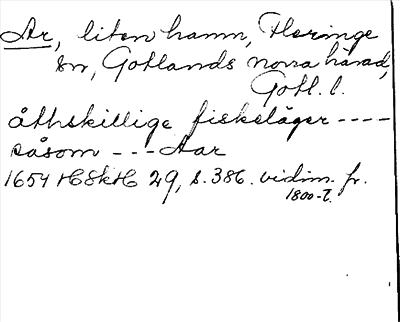 Ar, liten hamn, Fleringe
sn, Gotlands norra härad,
Gotl. l.
åthskillige fiskeläger ----
såsom --- Aar
1654 HSkH 29, s. 386. vidim. fr.
1800-t.